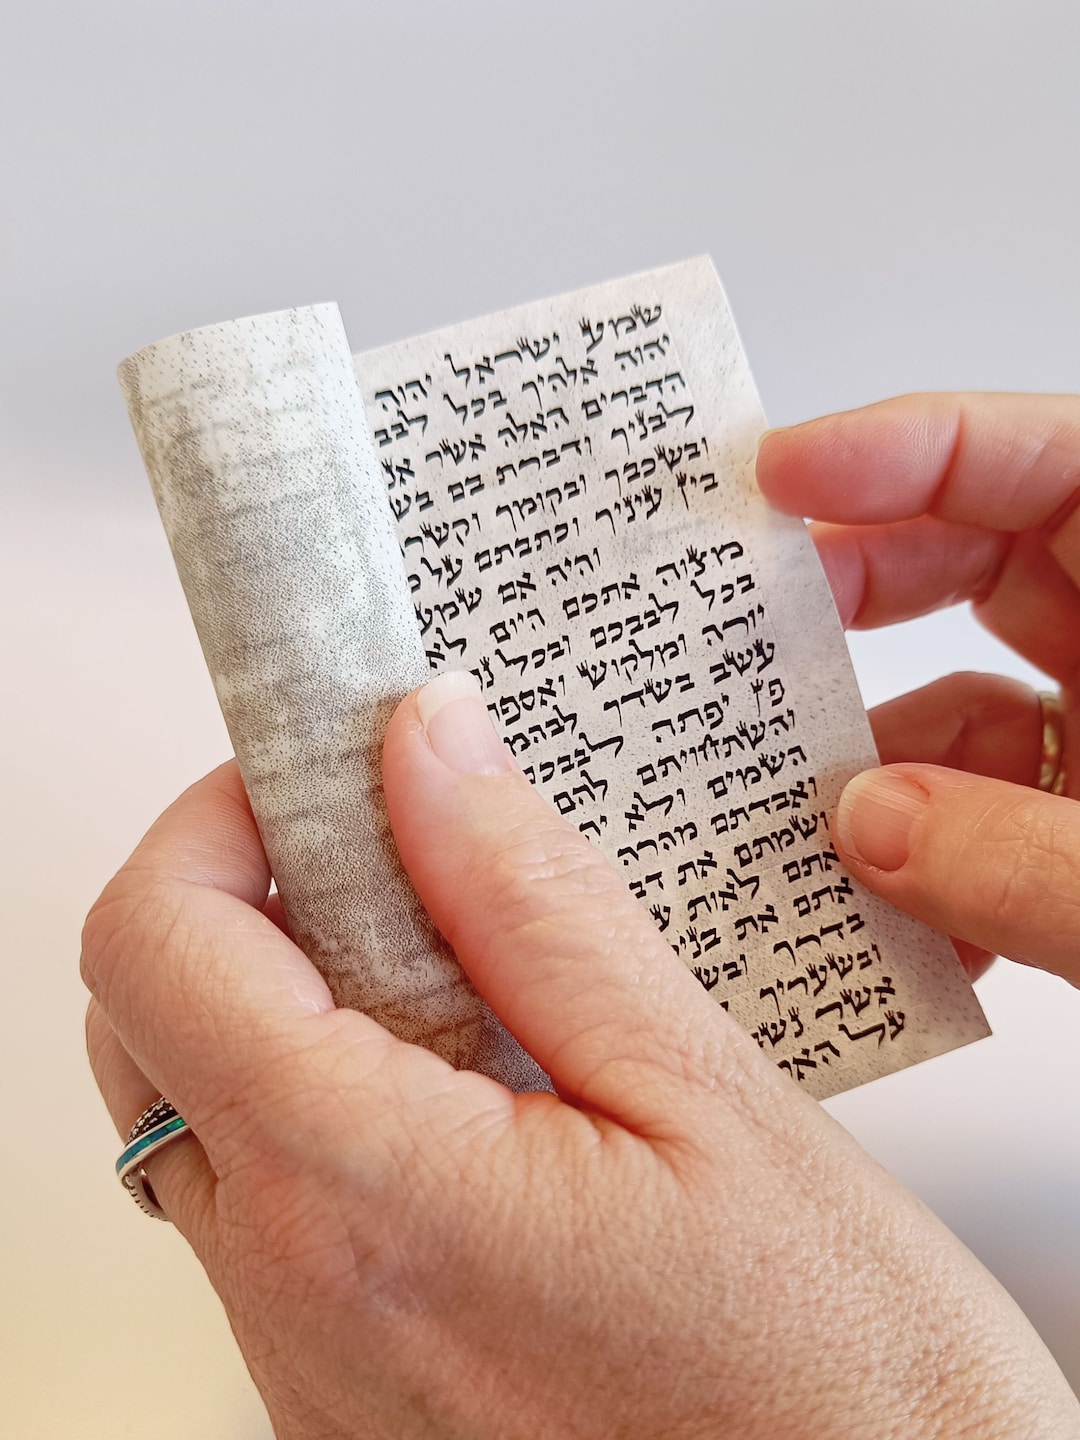 שמע ישראל יהוה
יהוה אלהיך בכל לבב
הדברים האלה אשר אנ
לבניך ודברת בם בש
ובשכבך ובקומך וקשר
בין עיניך וכתבתם על מ
והיה אם שמע
מצוה אתכם היום לא
בכל לבבכם ובכל
יורה ומלקוש ואספ
עשב בשדך לבהמ
פן יפתה לבבכ
והשתחויתם להם
השמים ולא יה
ואבדתם מהרה
ושמתם את דב
אתם לאות ע
אתם את בני
בדרך ובש
ובשעריך
אשר נשב
על האר